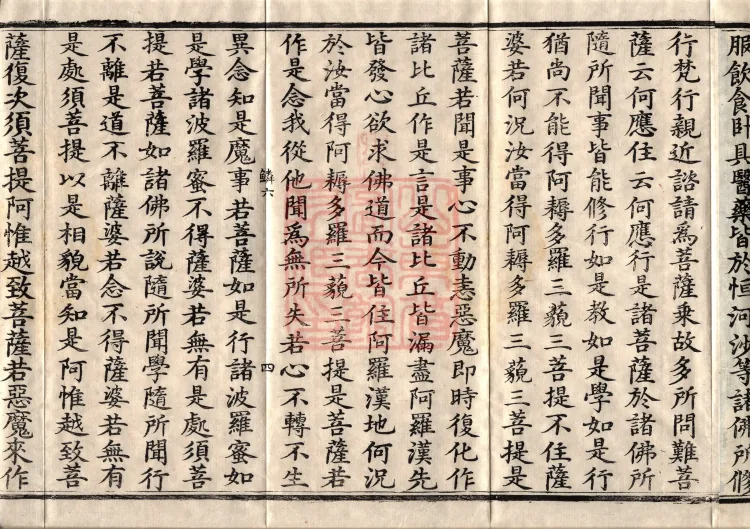 服飲食卧具醫藥皆於恒河沙等諸佛所修
行梵行親近諮請爲菩薩乘故多所問難菩
薩云何應住云何應行是諸菩薩於諸佛所
隨所聞事皆能修行如是教如是學如是行
猶尚不能得阿耨多羅三藐三菩提不住薩
婆若何況汝當得阿耨多羅三藐三菩提是
菩薩若聞是事心不動恚惡魔即時復化作
諸比丘作是言是諸比丘皆漏盡阿羅漢先
皆發心欲求佛道而今皆住阿羅漢地何況
於汝當得阿耨多羅三藐三菩提是菩薩若
作是念我從他聞爲無所失若心不轉不生
鱗六
四
異念知是魔事若菩薩如是行諸波羅蜜如
是學諸波羅蜜不得薩婆若無有是處須菩
提若菩薩如諸佛所說隨所聞學隨所聞行
不離是道不離薩婆若念不得薩婆若無有
是處須菩提以是相貌當知是阿惟越致菩
薩復次須菩提阿惟越致菩薩若惡魔來作